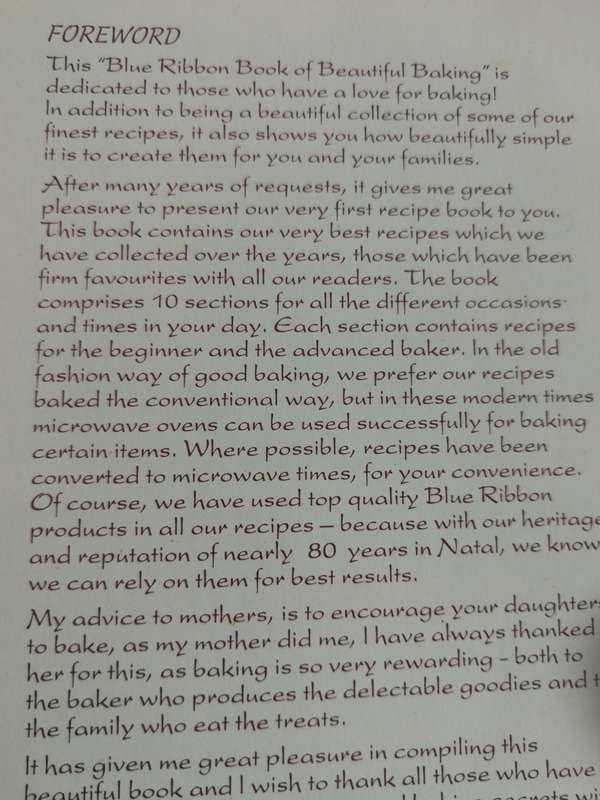 FOREWORD
This "Blue Ribbon Book of Beautiful Baking" is
dedicated to those who have a love for baking!
In addition to being a beautiful collection of some of our
finest recipes, it also shows you how beautifully simple
it is to create them for you and your families.
After many years of requests, it gives me great
pleasure to present our very first recipe book to you.
This book contains our very best recipes which we
have collected over the years, those which have been
firm favourites with all our readers. The book
comprises 10 sections for all the different occasions
and times in your day. Each section contains recipes
for the beginner and the advanced baker. In the old
fashion way of good baking, we prefer our recipes
baked the conventional way, but in these modern times
microwave ovens can be used successfully for baking
certain items. Where possible, recipes have been
converted to microwave times, for your convenience.
Of course, we have used top quality Blue Ribbon
products in all our recipes – because with our heritage
and reputation of nearly 80 years in Natal, we know
we can rely on them for best results.
My advice to mothers, is to encourage your daughters
to bake, as my mother did me, I have always thanked
her for this, as baking is so very rewarding - both to
the baker who produces the delectable goodies and
the family who eat the treats.
It has given me great pleasure in compiling this
beautiful book and I wish to thank all those who have